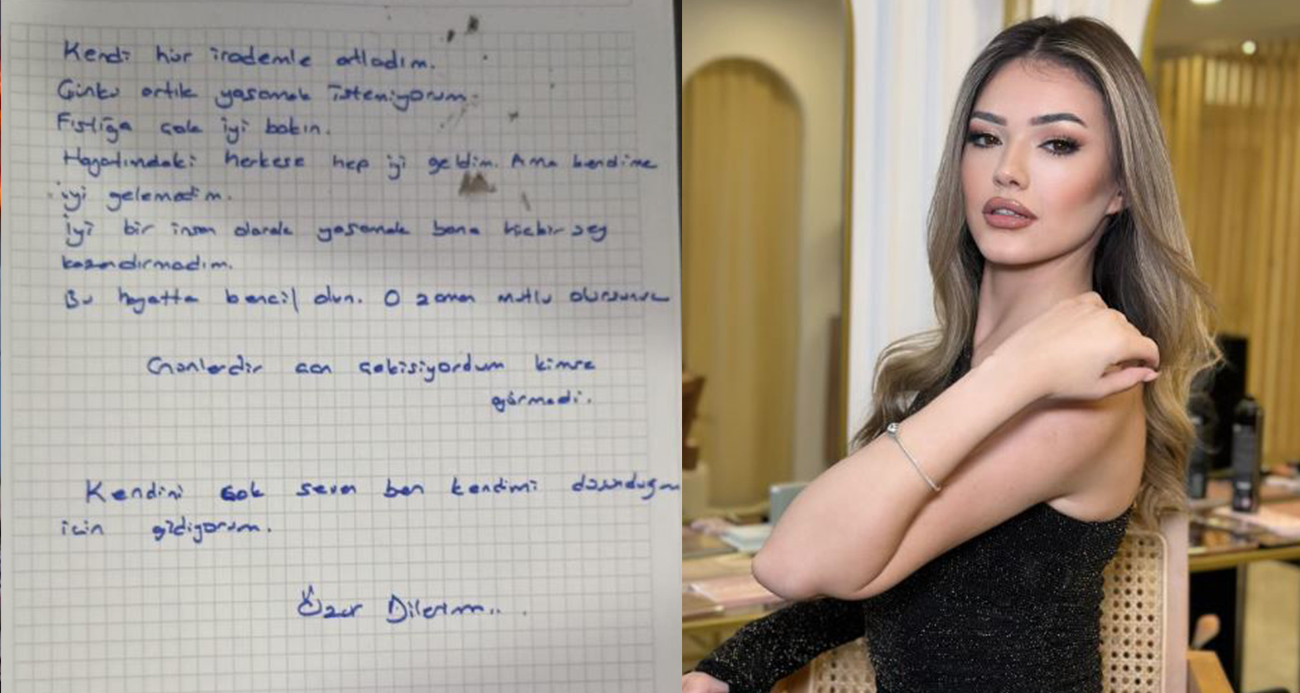 Kendi hür irademle atladım.
Çünkü artık yaşamak istemiyorum.
Fıstığa çok iyi bakın.
Hayatımdaki herkese hep iyi geldim. Ama kendime
iyi gelemedim.
İyi bir insan olarak yaşamak bana hiçbir şey
kazandırmadım.
Bu hayatta bencil olun. O zaman mutlu olursunuz
Günlerdir acı çekiyordum kimse
görmedi.
Kendini çok seven ben kendimi düşündüğüm
için gidiyorum.
Özür Dilerim...